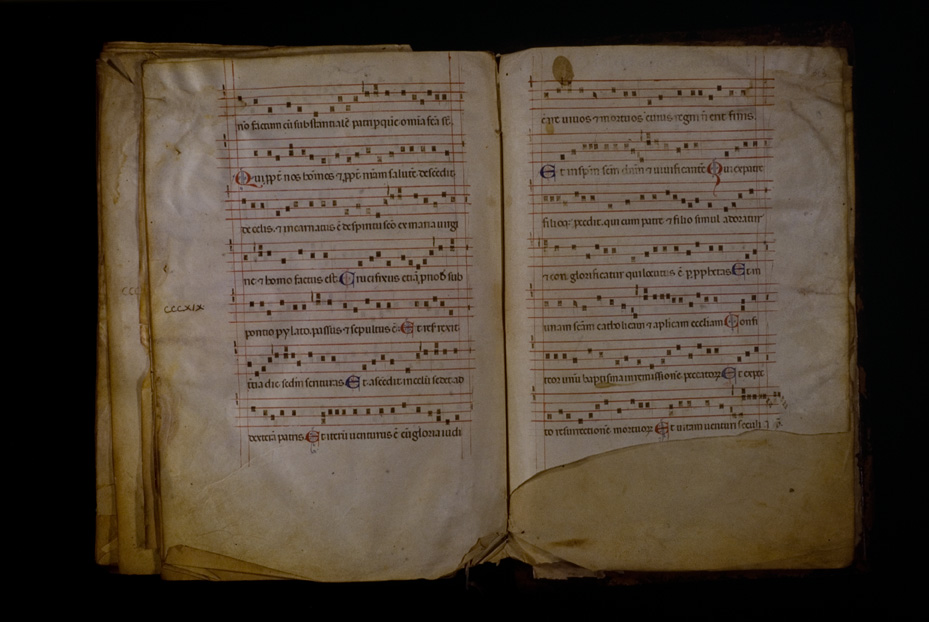 nō factum cū substantialē patri p quē omia fcā st.
Qui ppť nos hōīes ⁊ ppť nr̄am salutē descēdit
de celis. ⁊ incarnatus ē de spiritu scō ex maria uirgi
ne ⁊ homo factus est. Crucifixus etiā p nob sub
CCCXIX
pontio pylato. passus ⁊ sepultus ē. Et resurexit
tercia die secūdm scripturas Et ascēdit in celū sedet ad
dexterā patris. Et iterū uenturus ē cū gloria iudi
care uiuos ⁊ mortuos cuius regni n̄ erit finis.
Et in sp̄m scm̄ dn̄m ⁊ uiuificantē Qui ex patre
filioq; pcedit. qui cum patre ⁊ filio simul adoratur
⁊ conglorificatur qui locutus ē p pphetas Et in
unam scām catholicam ⁊ aplicam eccliam Confi
teor unū baptisma in remissionē peccatoꝝ Et expe
cto resurrectionē mortuoꝝ Et uitam uenturi seculi